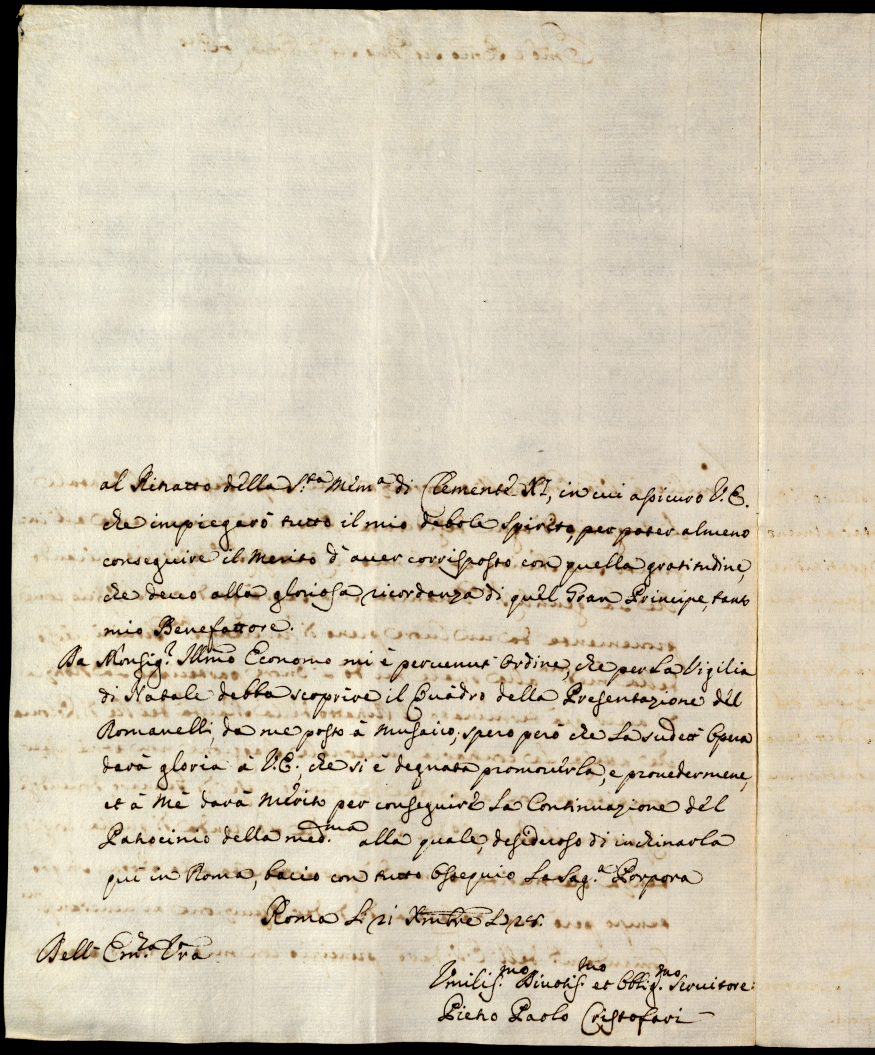 al Ritratto della S.ta Mem.a di Clemente XI, in cui assicuro V.E.
che impiegarò tutto il mio debole Spirito, per poter almeno
conseguire il Merito d'aver corrisposto con quella gratitudine,
che devo alla gloriosa ricordanza di quell Gran Principe, tanto
mio Benefattore.
Da Monsig.r Ill.mo Economo mi è pervenut' Ordine, che per La Vigilia
di Natale debba scoprire il Quadro della Presentazione del
Romanelli, da me posto à Musaico; spero però che La sudett' Opera
darà gloria a V.E., che si è degnata promoverla, e provedermene,
et à Me darà Merito per conseguire La Continuazione del
Patrocinio della med.ma alla quale, desideroso di inchinarla
quì in Roma, bacio con tutto Ossequio La Sag.a Porpora
Roma Li 21 Xmbre
Dell' Em.za V'ra
Umilis.mo Divotis.mo et Oblig.mo Servitore
Pietro Paolo Cristofari